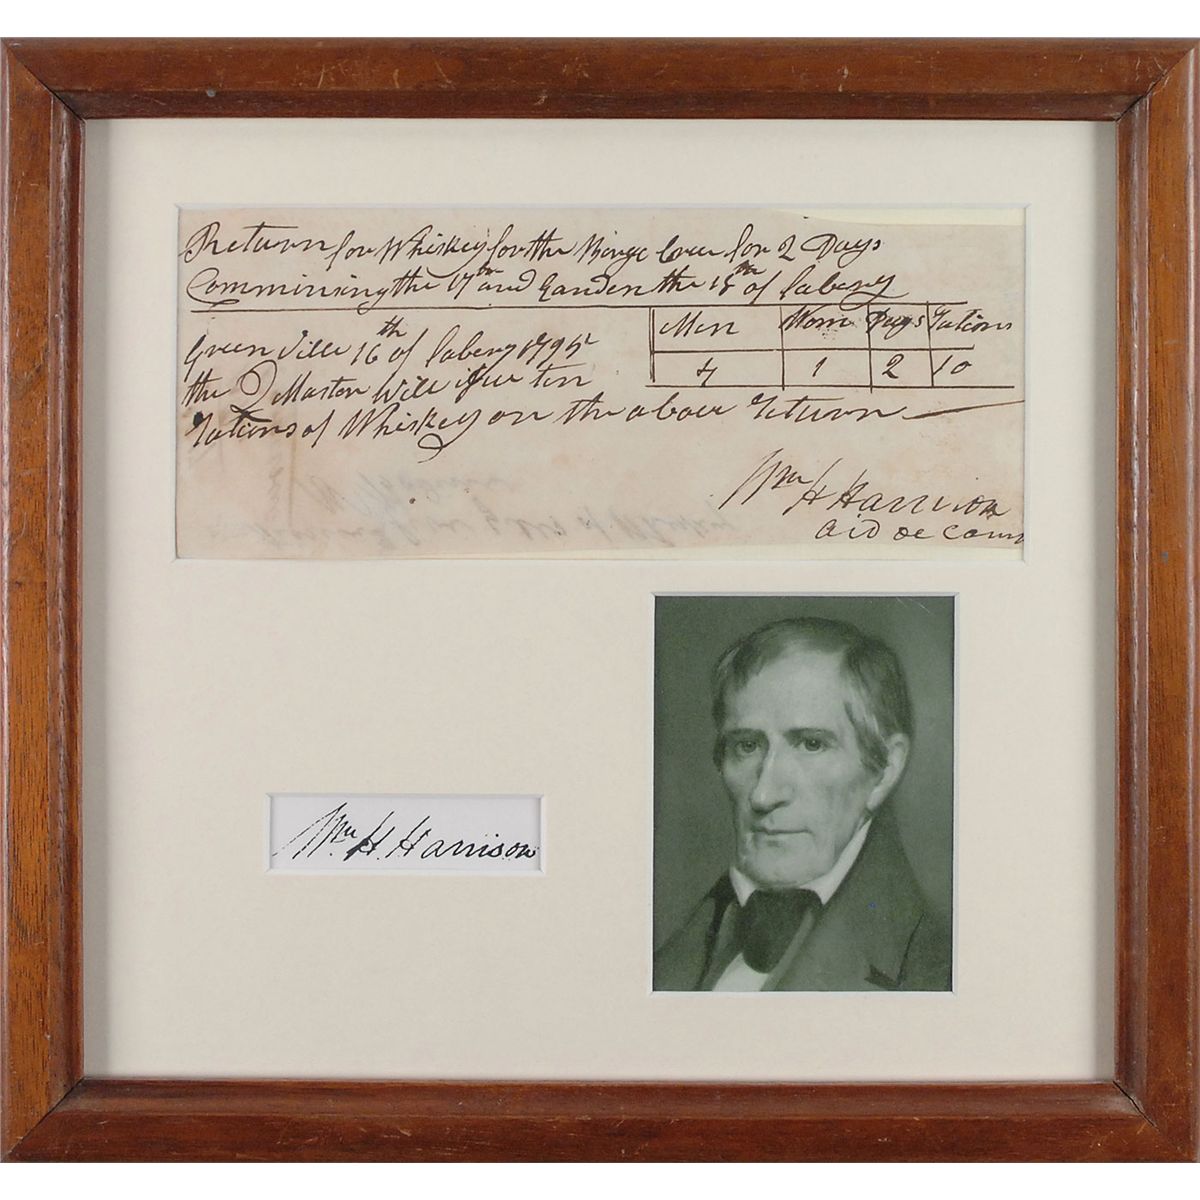 Return for Whiskey for the Barge Crue for 2 Days
Comminsing the 17th and Eanden the 18th of Jabery
Men Wom Days Rations
4 1 2 10
Green Ville 16th of Jabery 1795
the Q Master Will isue ten
Rations of Whiskey on the aboue Return
Wm H Harrison
aid de camp
Wm. H. Harrison